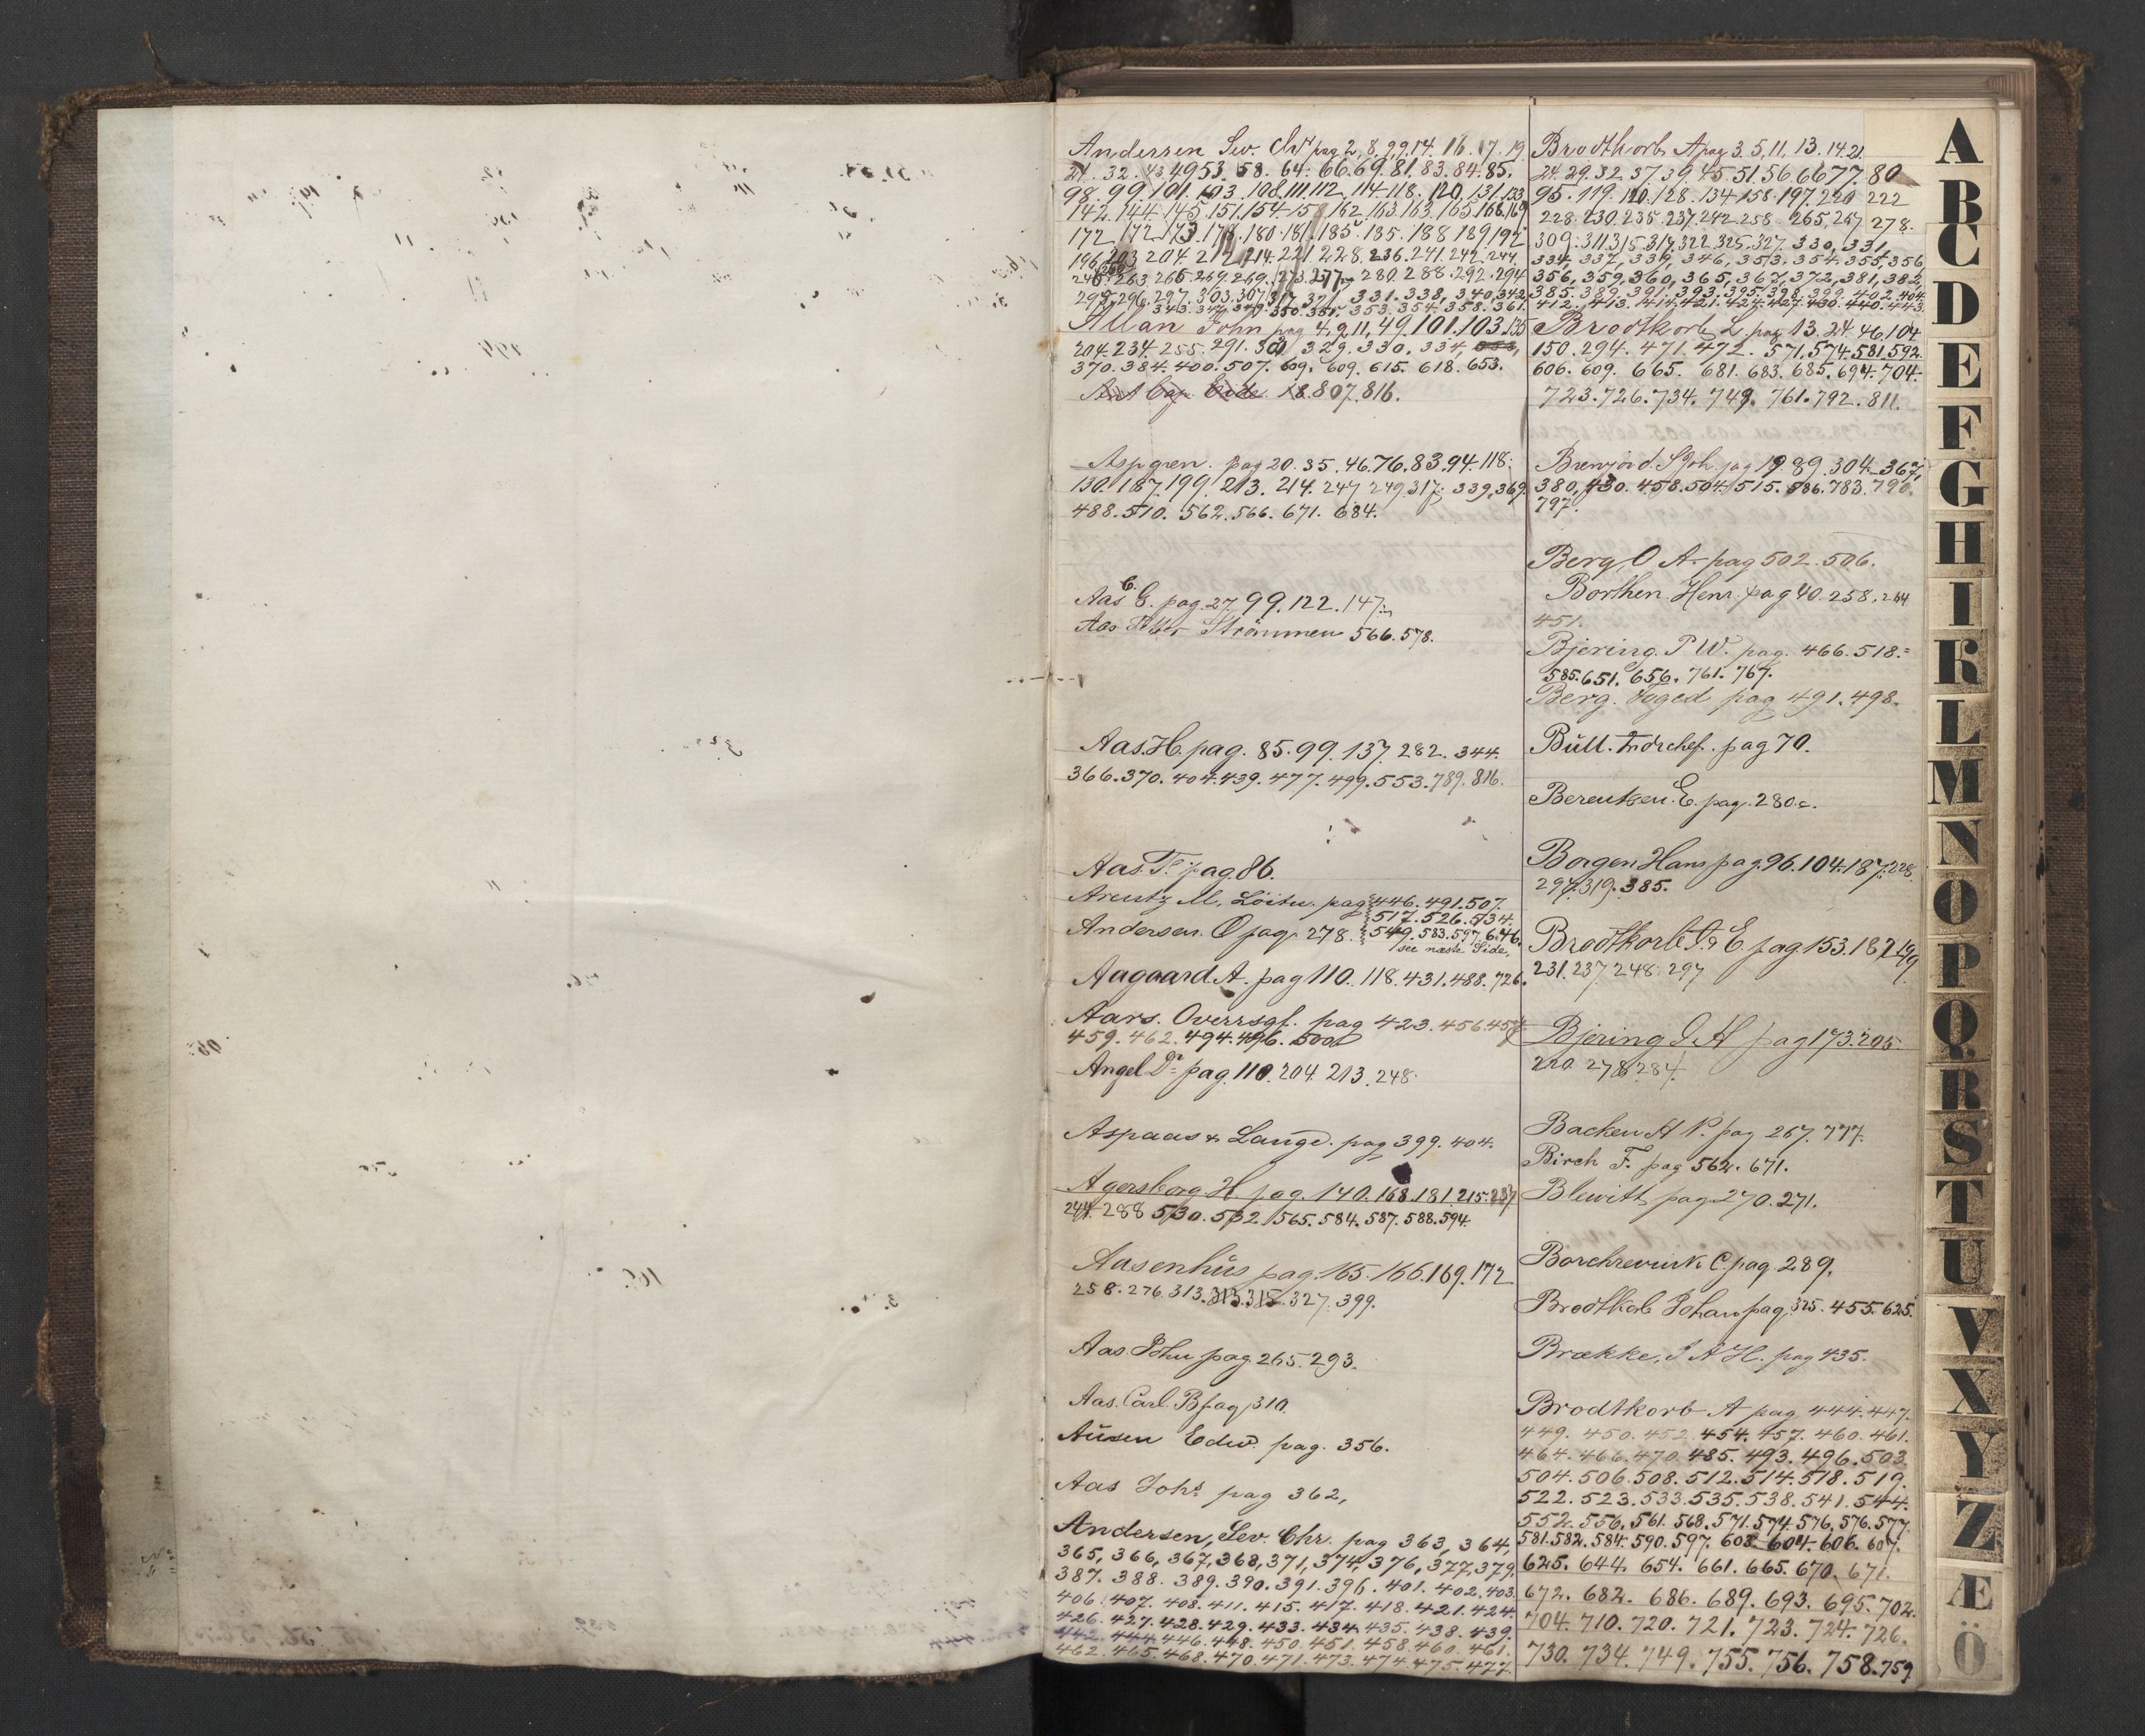 Andersen Sev. Chr pag 2, 8, 9, 9, 14. 16. 17. 19.
24. 32. 43 49 53. 58. 64. 66. 69. 81. 83. 84. 85.
98. 99. 101. 103. 108. 111 112. 114. 118. 120. 131. 133
142. 144. 145. 151. 154. 158 162 163. 163. 165 168. 169
172. 172. 173. 178. 180. 181. 185. 185. 188 189 192
196 203 204. 212. 214. 221 228. 236. 241. 242. 244.
263. 265. 269. 269. 273. 277. 280. 288. 292. 294
295. 296. 297. 303. 307. 317. 321. 331. 338, 340, 342
343. 347. 349. 350. 351. 353. 354. 358. 361.
Allan John pag 4, 9, 11, 49, 101. 103. 135
204. 234. 255. 291. 301 329. 330. 334,
370. 384. 400. 507. 609. 609. 615. 618. 653.
18. 807. 816.
Aspgren. pag 20. 35. 46. 76. 83. 94. 118.
130. 187. 199. 213. 214. 247 249. 317. 339, 369.
488. 510. 562. 566. 671. 684.
Aas E. pag. 27. 99. 122. 147.
Aas Strömmen 566. 578.
Aas. H. pag. 85. 99. 137. 282. 344.
366. 370. 404. 439. 477. 499. 553. 789. 816.
Aas. T. pag. 86.
Arentz M. Löitn. pag 446. 491. 507.
517. 526. 534.
Andersen. O pag. 278. 549. 583. 597. 646.
see næste Side.
Aagaard A. pag 110. 118. 431. 488. 726.
Aars. Overrsgf. pag 423. 456. 457
459. 462. 494. 496. 500
Angel Dr pag. 110. 204. 213. 248.
Aspaas & Lange. pag 399. 404.
Agersborg H. pag. 140. 168. 181. 215. 237
244. 288 530. 532. 565. 584. 587. 588. 594.
Aasenhus pag. 165. 166. 169. 172
258. 276. 313. 313. 318. 327. 399.
Aas. John pag. 265. 293.
Aas. Carl. B pag 310.
Ausen Edw. pag. 356.
Aas Johs pag 362,
Andersen, Sev. Chr. pag 363, 364,
365, 366, 367, 368, 371, 374, 376, 377, 379,
387. 388. 389. 390. 391. 396. 401. 402. 403.
406. 407. 408. 411. 415. 417. 418. 421. 424.
426. 427. 428. 429. 433. 434. 435. 438. 439.
442. 444. 446. 448. 450. 451. 458. 460. 461.
462. 465. 468. 470. 471. 473. 474. 475. 477.
Brodtkorb A pag 3. 5, 11, 13. 14. 21.
24. 29. 32. 37 39. 45. 51. 56. 66 77. 80
95. 119. 120. 128. 134. 158. 197. 220 222
228. 230. 235. 237. 242. 258. 265, 267 278.
309. 311. 315. 317. 322. 325. 327. 330, 331,
334, 337, 339, 346, 353. 354. 355, 356
356, 359, 360, 365, 367, 372, 381, 382,
385. 389. 391. 393. 395. 399. 399. 402. 404.
412. 413. 414. 421. 424. 427. 430. 440. 443.
Brodtkorb L. pag 13. 24. 46, 104
150. 294. 471. 472. 571. 574. 581. 592.
606. 609. 665. 681. 683. 685. 694. 704.
723. 726. 734. 749. 761. 792. 811.
pag 19. 89. 304. 367,
380, 430. 458. 504. 515. 783. 790.
797.
Berg, O A. pag 502. 506.
Borthen Henr. pag 40. 258. 284
451.
Bjering. P W. pag. 466. 518.
585. 651. 656. 761. 767.
Berg. Foged pag 491. 498.
Bull. Indrchef. pag 70.
Berentsen. E. pag. 280.
Borgen Hans pag. 96. 104. 187. 228
297. 319. 385.
Brodtkorb I. & E. pag 153. 187 199
231. 237 248. 297
Bjering I. H pag 173. 205.
220 278 284.
Backen H P. pag 267. 777.
Birch F. pag 562. 671.
Blewitt pag 270. 271.
Borchrevink C. pag 289.
Brodtkorb Johan pag. 325. 455. 625.
Brække, I A H. pag 435.
Brodtkorb A pag 444. 447.
449. 450. 452. 454. 457. 460. 461.
464. 466. 470. 485. 493. 496. 503.
504. 506. 508. 512. 514. 518. 519.
522. 523. 533. 535. 538. 541. 544.
552. 556. 561. 568. 571. 574. 576. 576. 577.
581. 582. 584. 590. 597. 602. 604. 606. 607.
625. 644. 654. 661. 665. 670. 671.
672. 682. 686. 689. 693. 695. 702.
704. 710. 720. 721. 723. 724. 726.
730. 734. 749. 755. 756. 758. 759.
A
B
C
D
E
F
G
H
I
K
L
M
N
O
P
Q
R
S
T
U
V
X
Y
Z
Æ
Ö